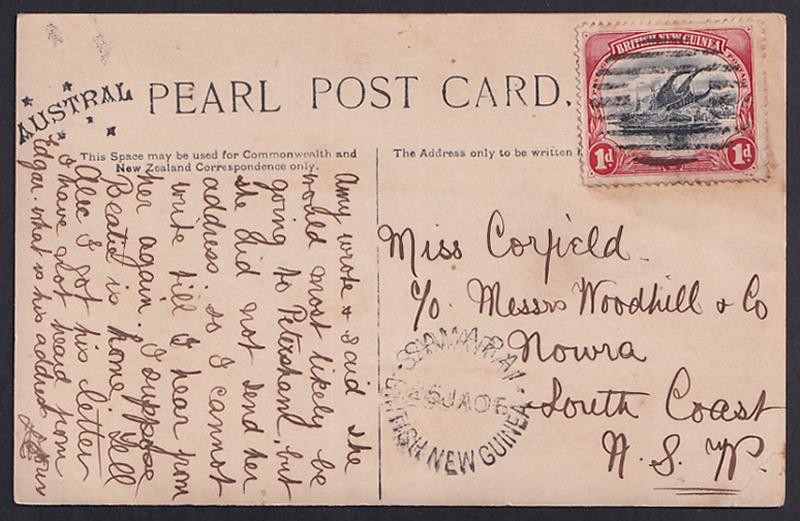 AUSTRAL
PEARL POST CARD.
This Space may be used for Commonwealth and
New Zealand Correspondence only.
The Address only to be written
BRITISH NEW GUINEA
POSTAGE
1d
1d
Amy wrote & said she
would most likely be
going to Petersham, but
she did not send her
address. so I cannot
write till I hear from
her again. I suppose
Beatie is home. Tell
Alec I got his letter
& have not heard from
Edgar. what is his address
Miss Corfield
c/o. Messrs Woodhill & Co
Nowra
South Coast
N. S. W.
SAMARAI
JA 06
BRITISH NEW GUINEA